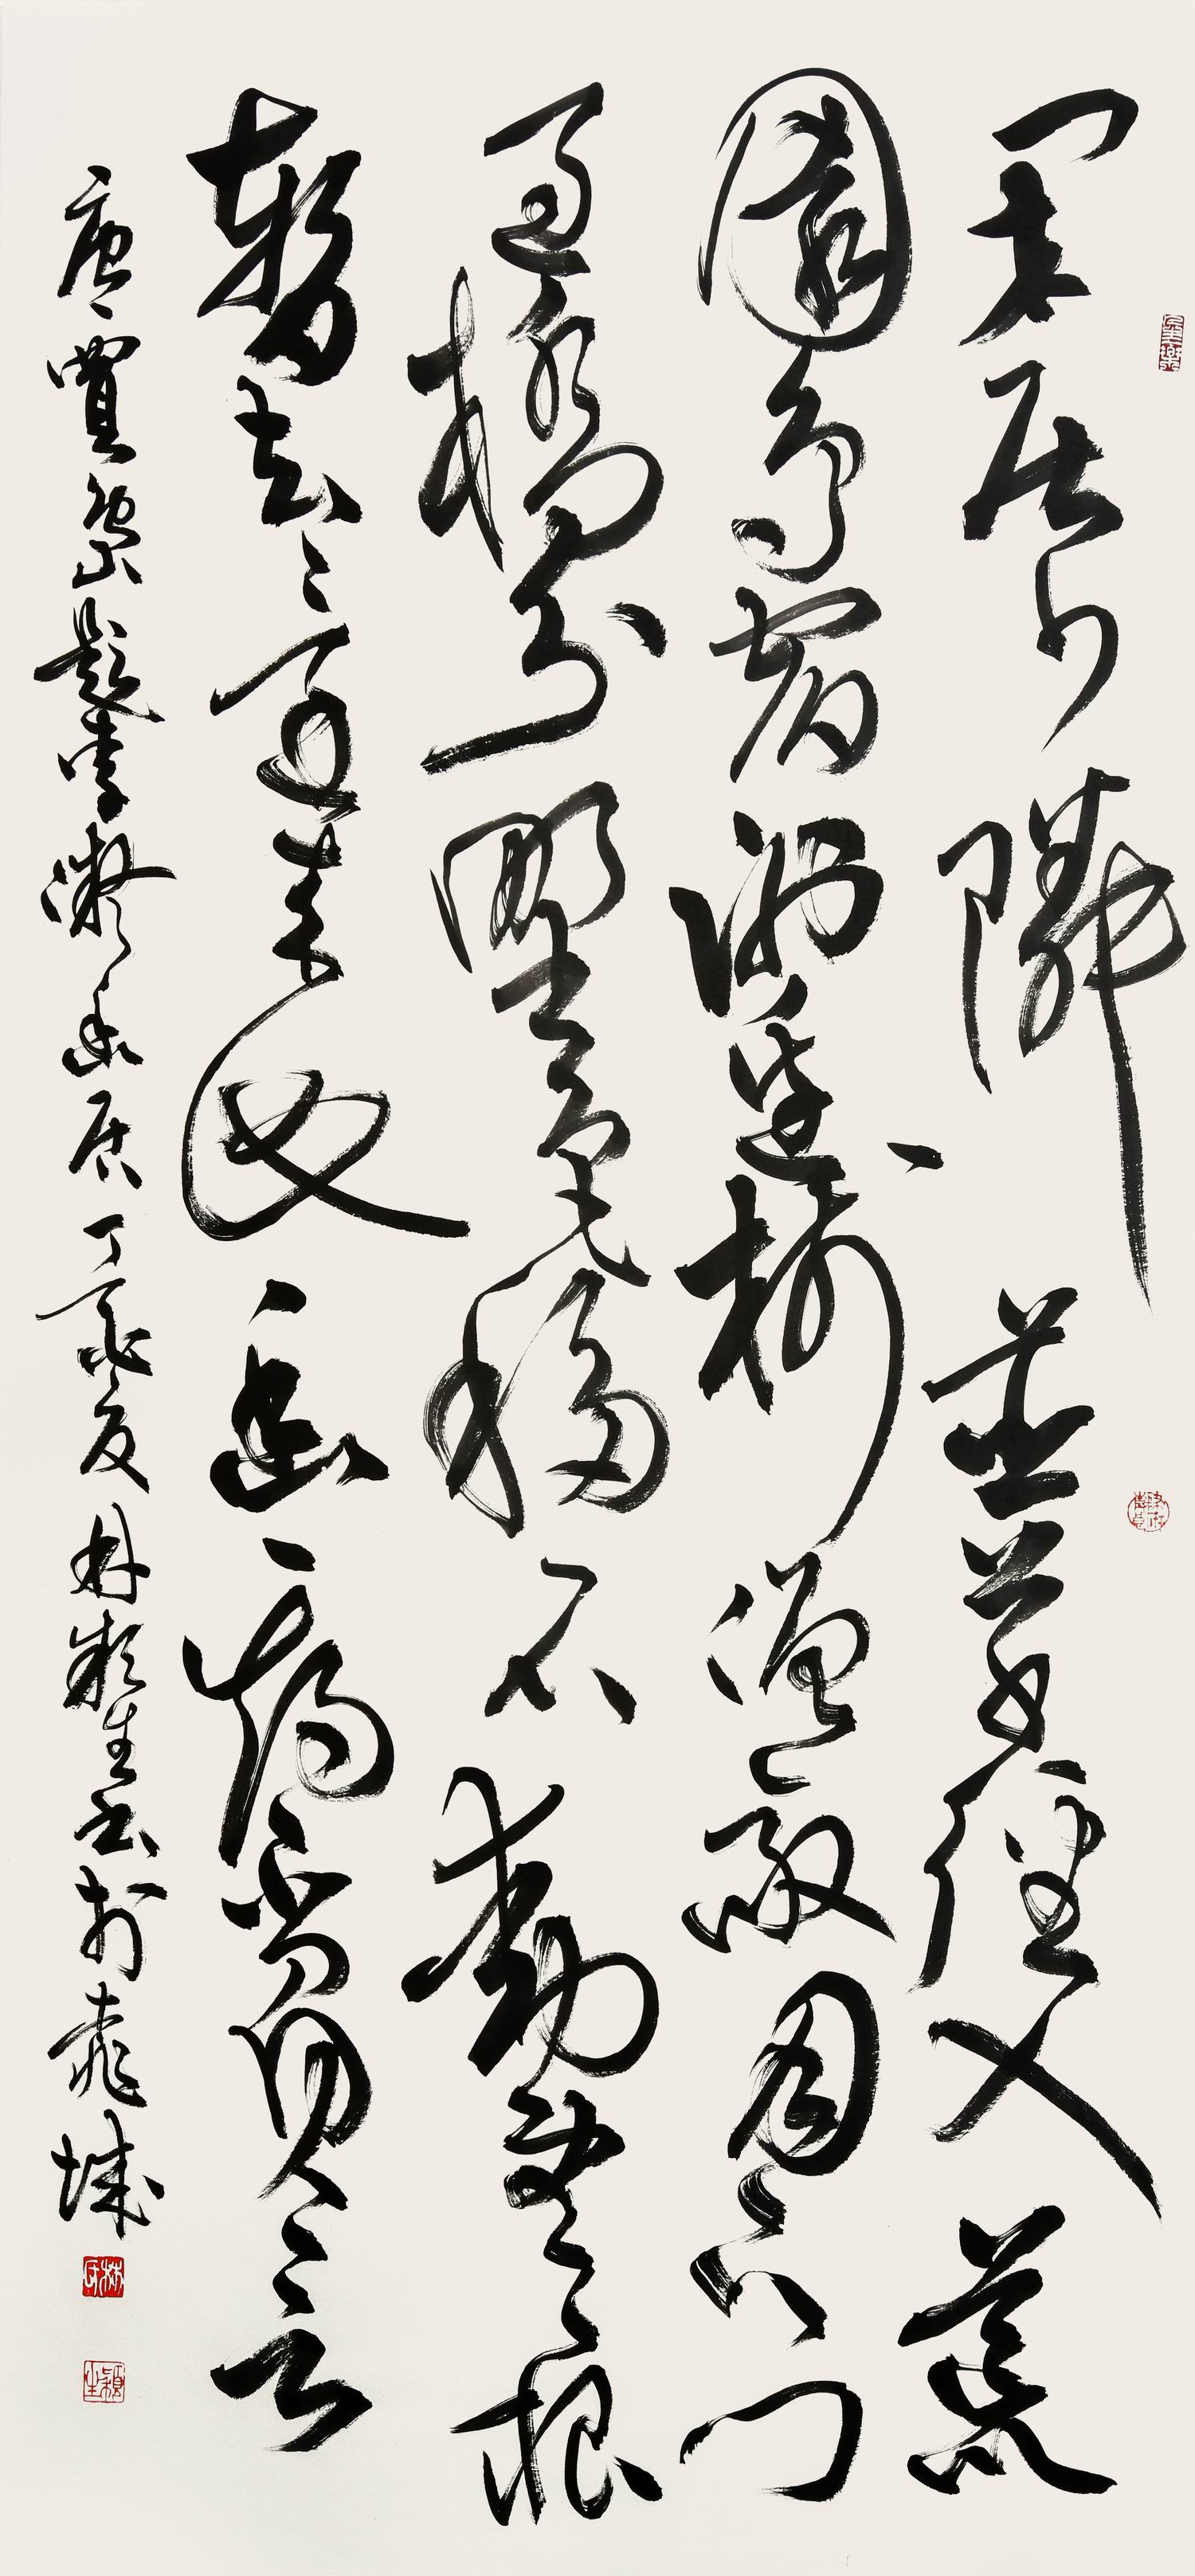 閑居少隣並草徑入荒
園鳥宿池邊樹僧敲月下門
過橋分野色移石動雲根
暫去還來此幽期不負言
唐賈島題李凝幽居丁亥夏林穎生書於城
穎生